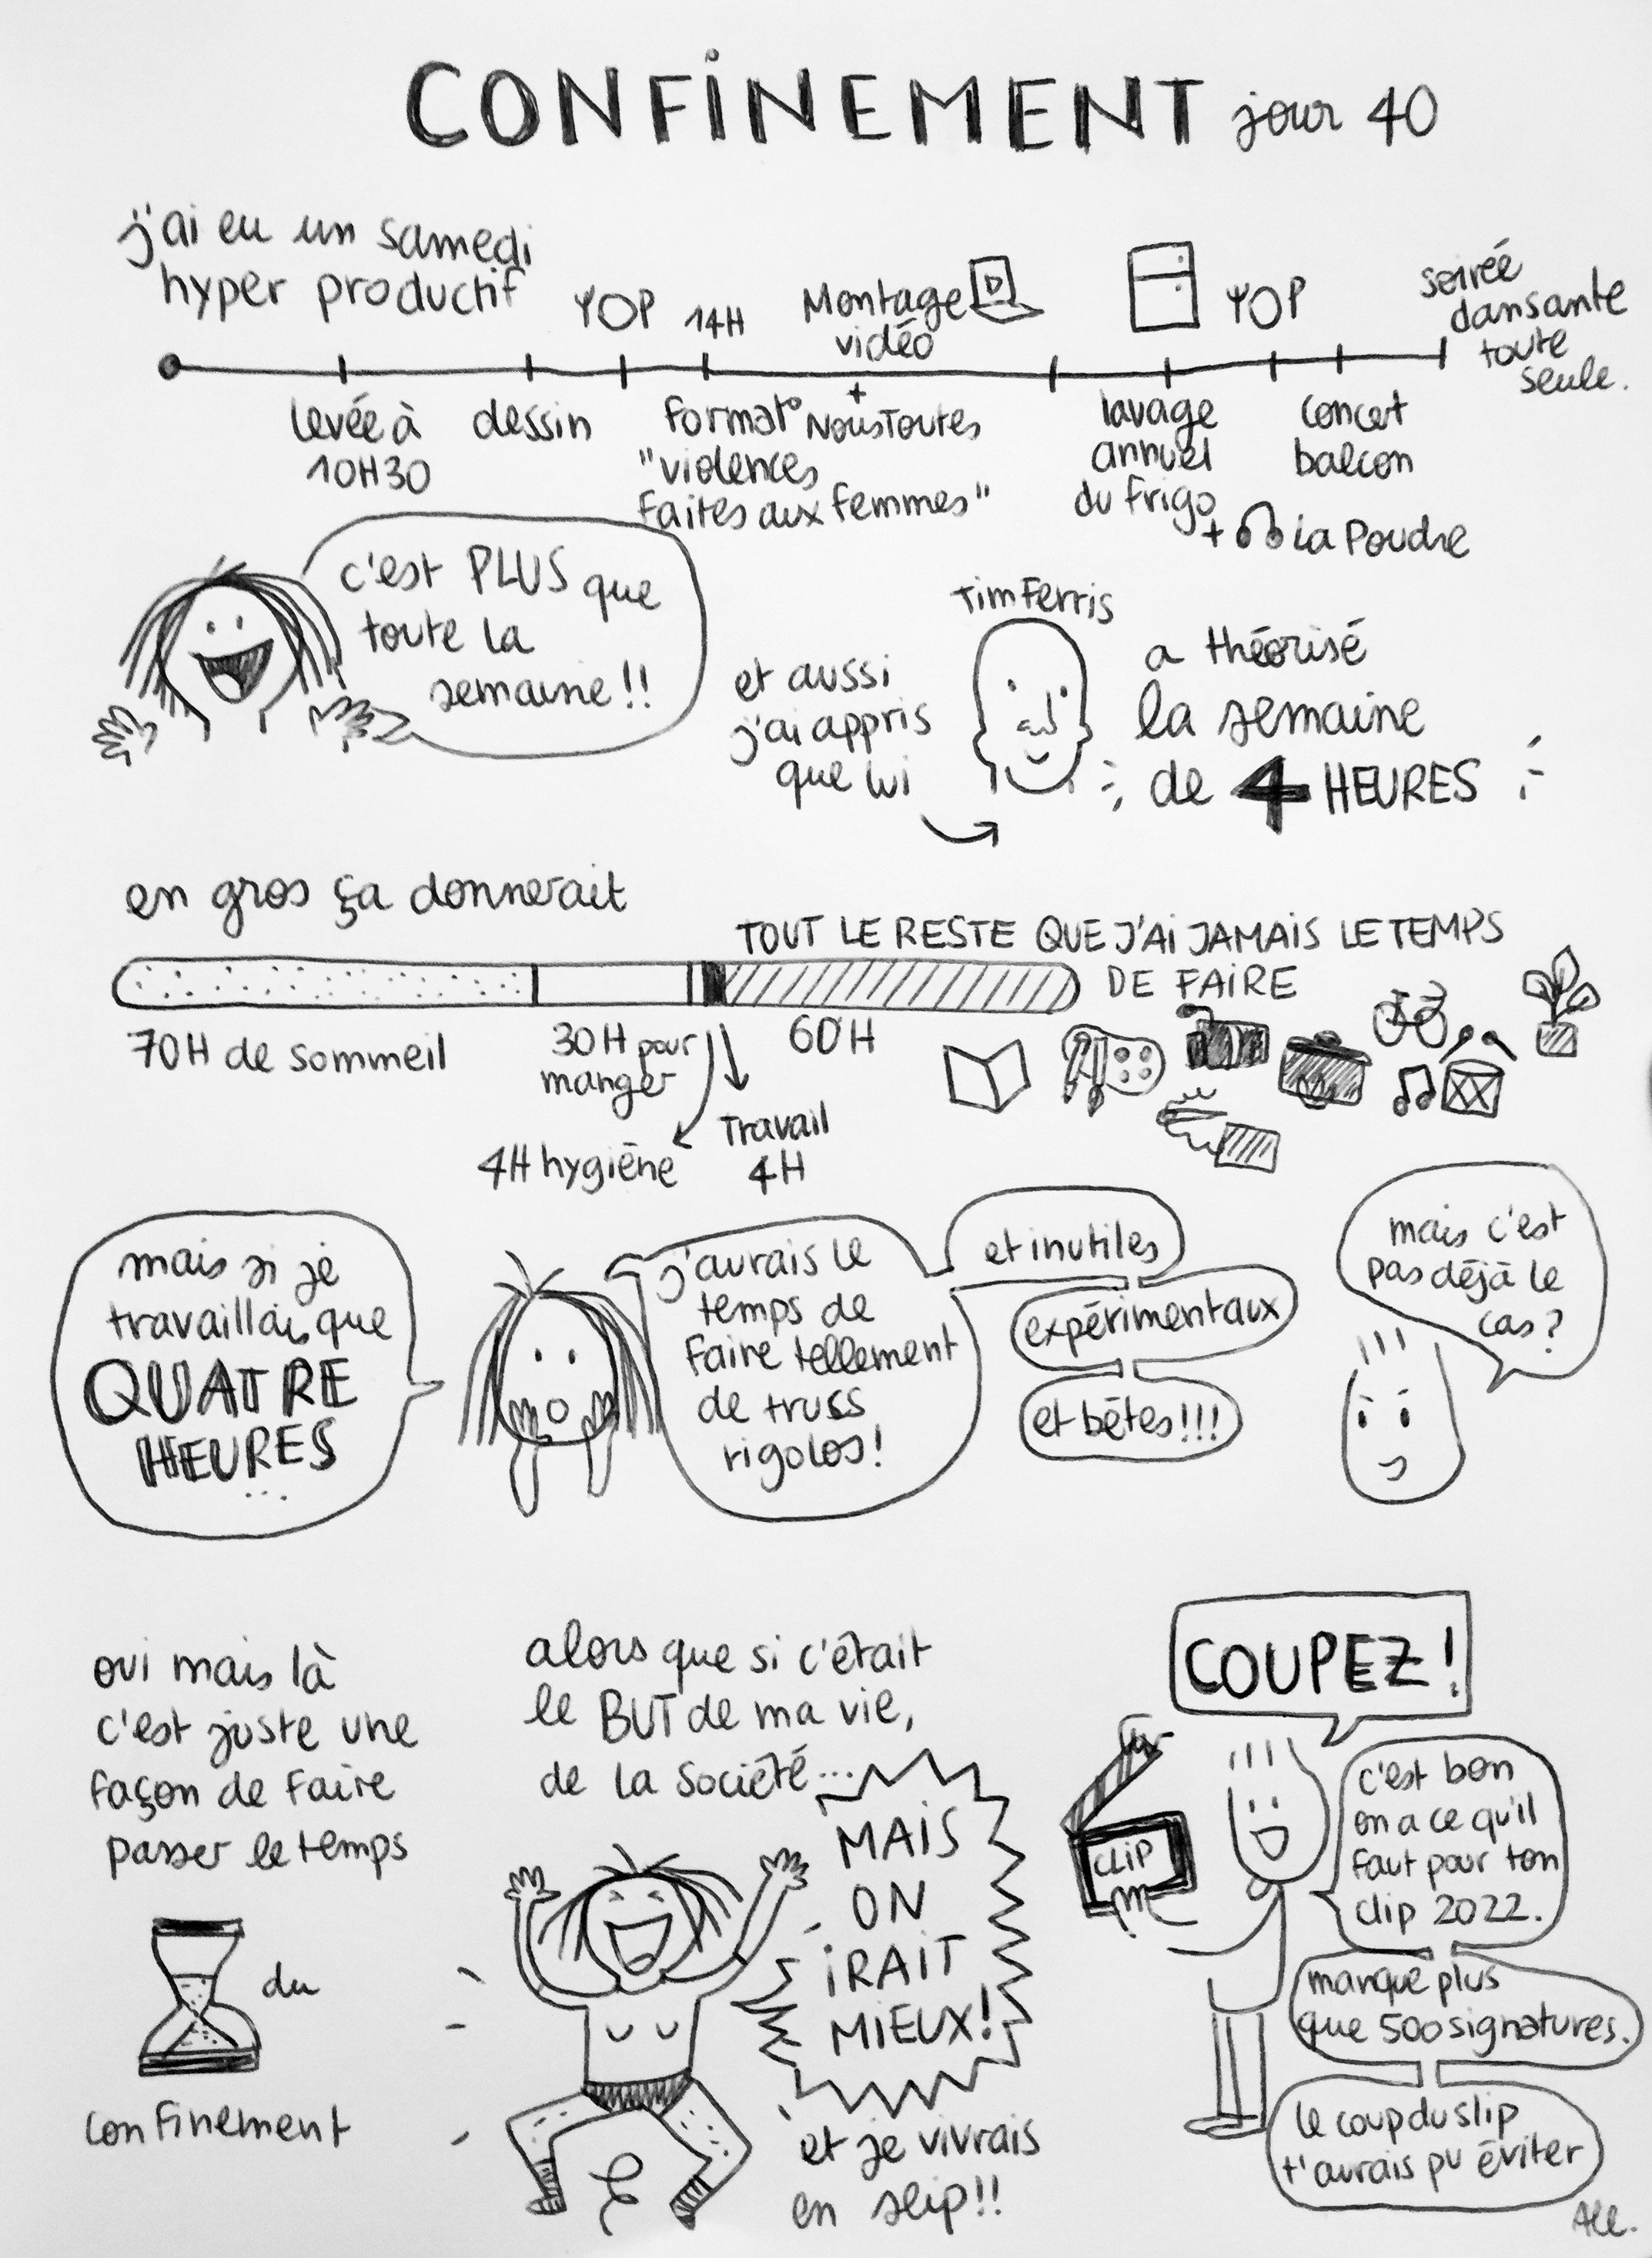 CONFINEMENT jour 40
j'ai eu un samedi
hyper productif
YOP
14H
Montage
vidéo
YOP
soirée
dansante
toute
seule.
levée à
10H30
dessin
format° NousToutes
"violences
faites aux femmes"
+
lavage
annuel
du frigo
+ La Poudre
concert
balcon
c'est PLUS que
toute la
semaine!!
et aussi
j'ai appris
que lui
Tim Ferris
a théorisé
la semaine
de 4 HEURES
en gros ça donnerait
TOUT LE RESTE QUE J'AI JAMAIS LE TEMPS
DE FAIRE
70H de sommeil
30H pour
manger
60H
4H hygiène
Travail
4H
mais si je
travaillais que
QUATRE
HEURES
...
j'aurais le
temps de
faire tellement
de trucs
rigolos!
et inutiles
expérimentaux
et bêtes!!!
mais c'est
pas déjà le
cas?
oui mais là
c'est juste une
façon de faire
passer le temps
du
confinement
alors que si c'était
le BUT de ma vie,
de la société...
MAIS
ON
IRAIT
MIEUX!
et je vivrais
en slip!!
COUPEZ!
CLIP
c'est bon
on a ce qu'il
faut pour ton
clip 2022.
manque plus
que 500 signatures.
le coup du slip
t'aurais pu éviter